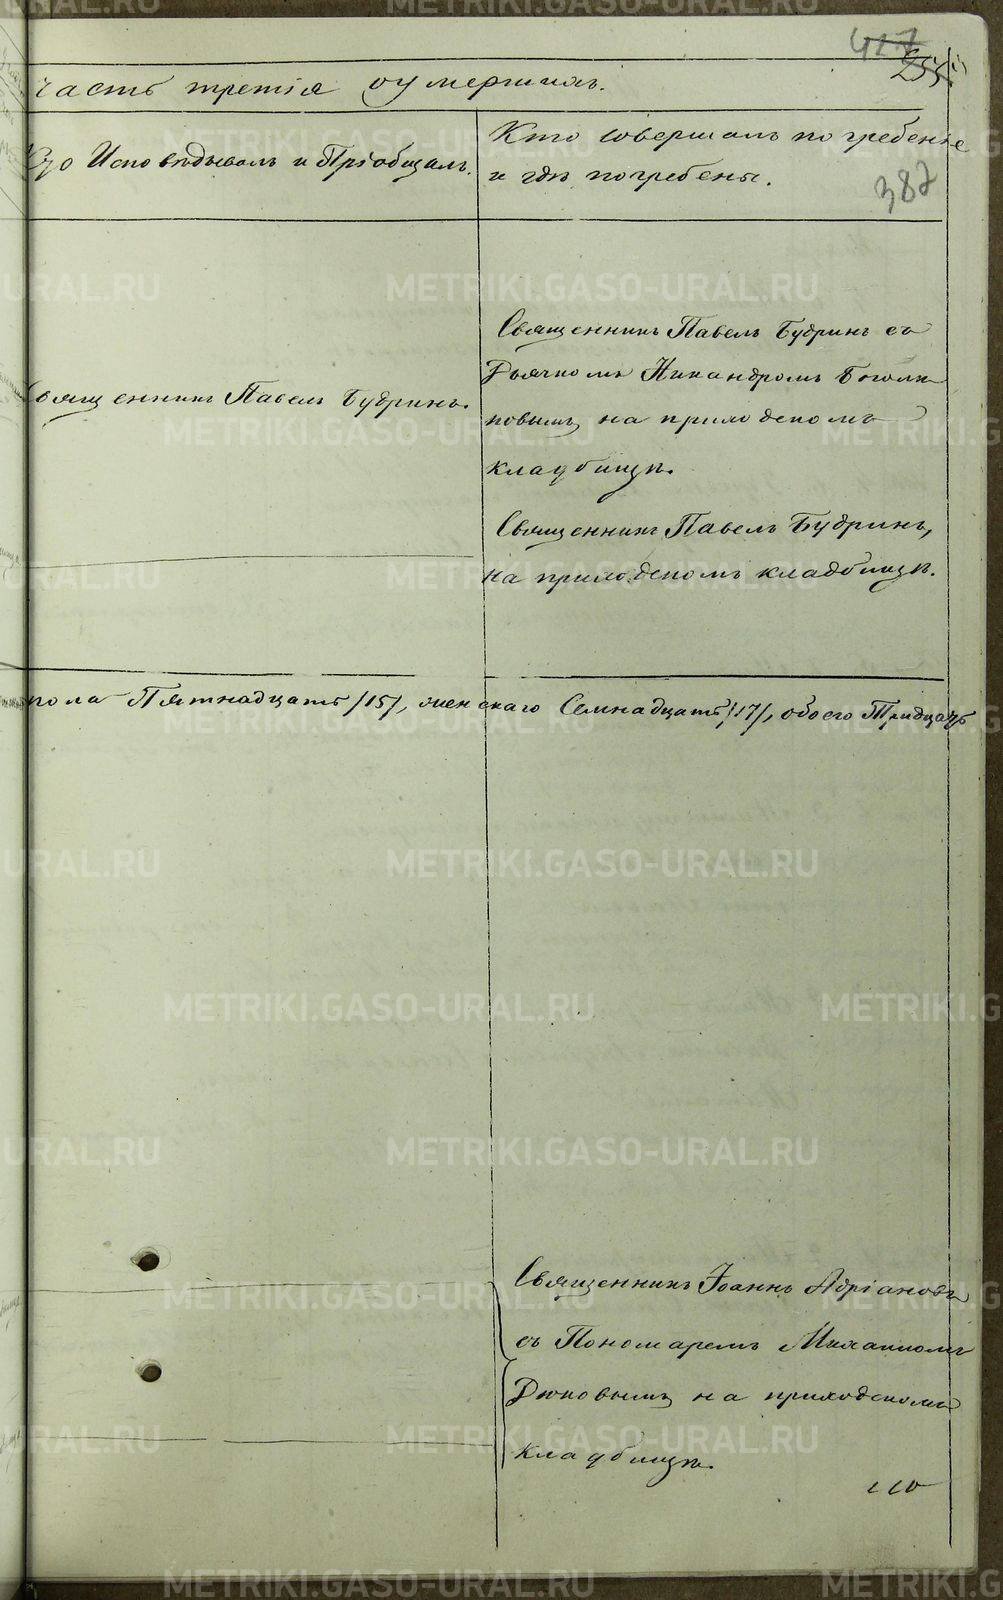 417
255
часть третія оумершихъ.
Кто Исповѣдывалъ и Пріобщалъ.
Кто совершалъ погребеніе
и гдѣ погребены.
387
Священникъ Павелъ Будринъ.
Священникъ Павелъ Будринъ съ
Дьячкомъ Никандромъ
на приходскомъ
кладбищѣ.
Священникъ Павелъ Будринъ,
на приходскомъ кладбищѣ.
пола Пятнадцать /15/, женскаго Семнадцать /17/, обоего Тридцать
Священникъ Іоаннъ Адріановъ
съ Пономаремъ Михаиломъ
на приходскомъ
кладбищѣ.
METRIKI.GASO-URAL.RU